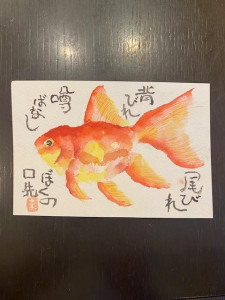 背
びれ
尾び
れ
噂
ばなし
ぼくの
口先